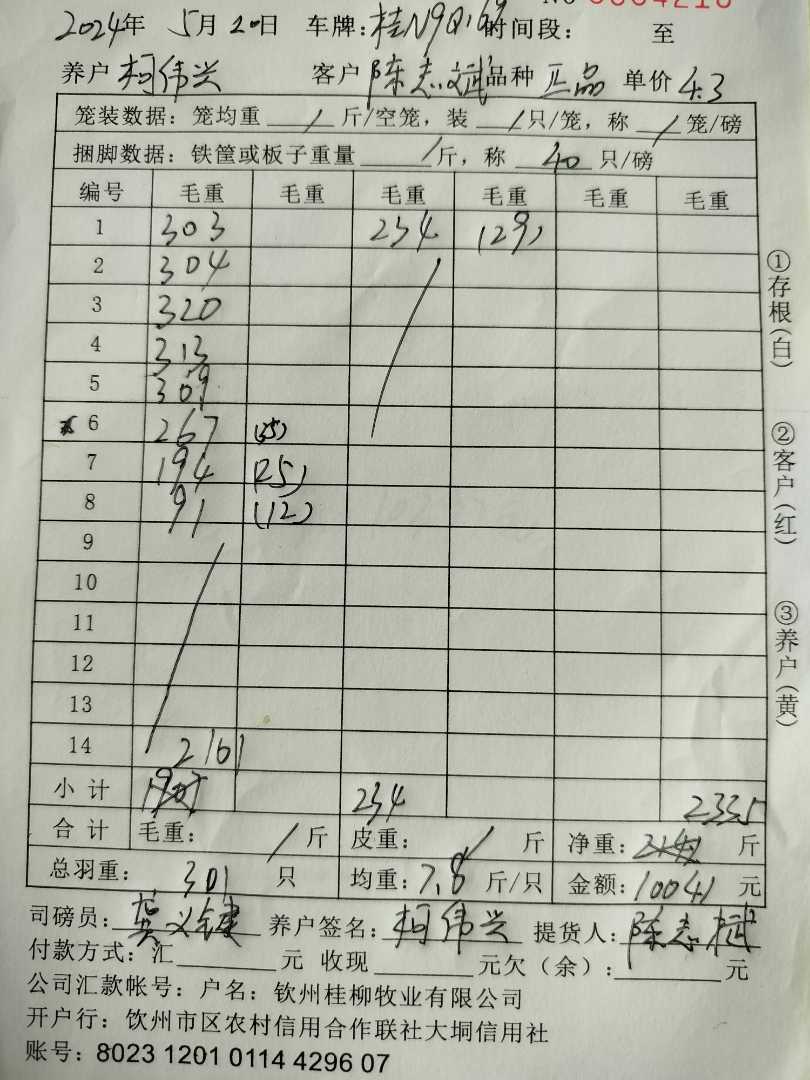 No 0004218
2024年 5月20日 车牌:桂N9Q 时间段: 至
养户 柯伟兴 客户 陈志斌 品种 正品 单价 4.3
笼装数据: 笼均重 / 斤/空笼, 装 / 只/笼, 称 / 笼/磅
捆脚数据: 铁筐或板子重量 / 斤, 称 40 只/磅
编号 毛重 毛重 毛重 毛重 毛重 毛重
1 303 234 (29)
2 304
3 320
4 313
5 309
6 267 (35)
7 194 (25)
8 91 (12)
9
10
11
12
13
14 2161
小计 234 2335
合计 毛重: / 斤 皮重: / 斤 净重: 斤
总羽重: 301 只 均重: 7.8 斤/只 金额: 10041 元
司磅员: 龚义键 养户签名: 柯伟兴 提货人: 陈志斌
付款方式: 汇 元 收现 元欠(余): 元
公司汇款帐号: 户名: 钦州桂柳牧业有限公司
开户行: 饮州市区农村信用合作联社大垌信用社
账号: 8023 1201 0114 4296 07
①存根(白)
②客户(红)
③养户(黄)